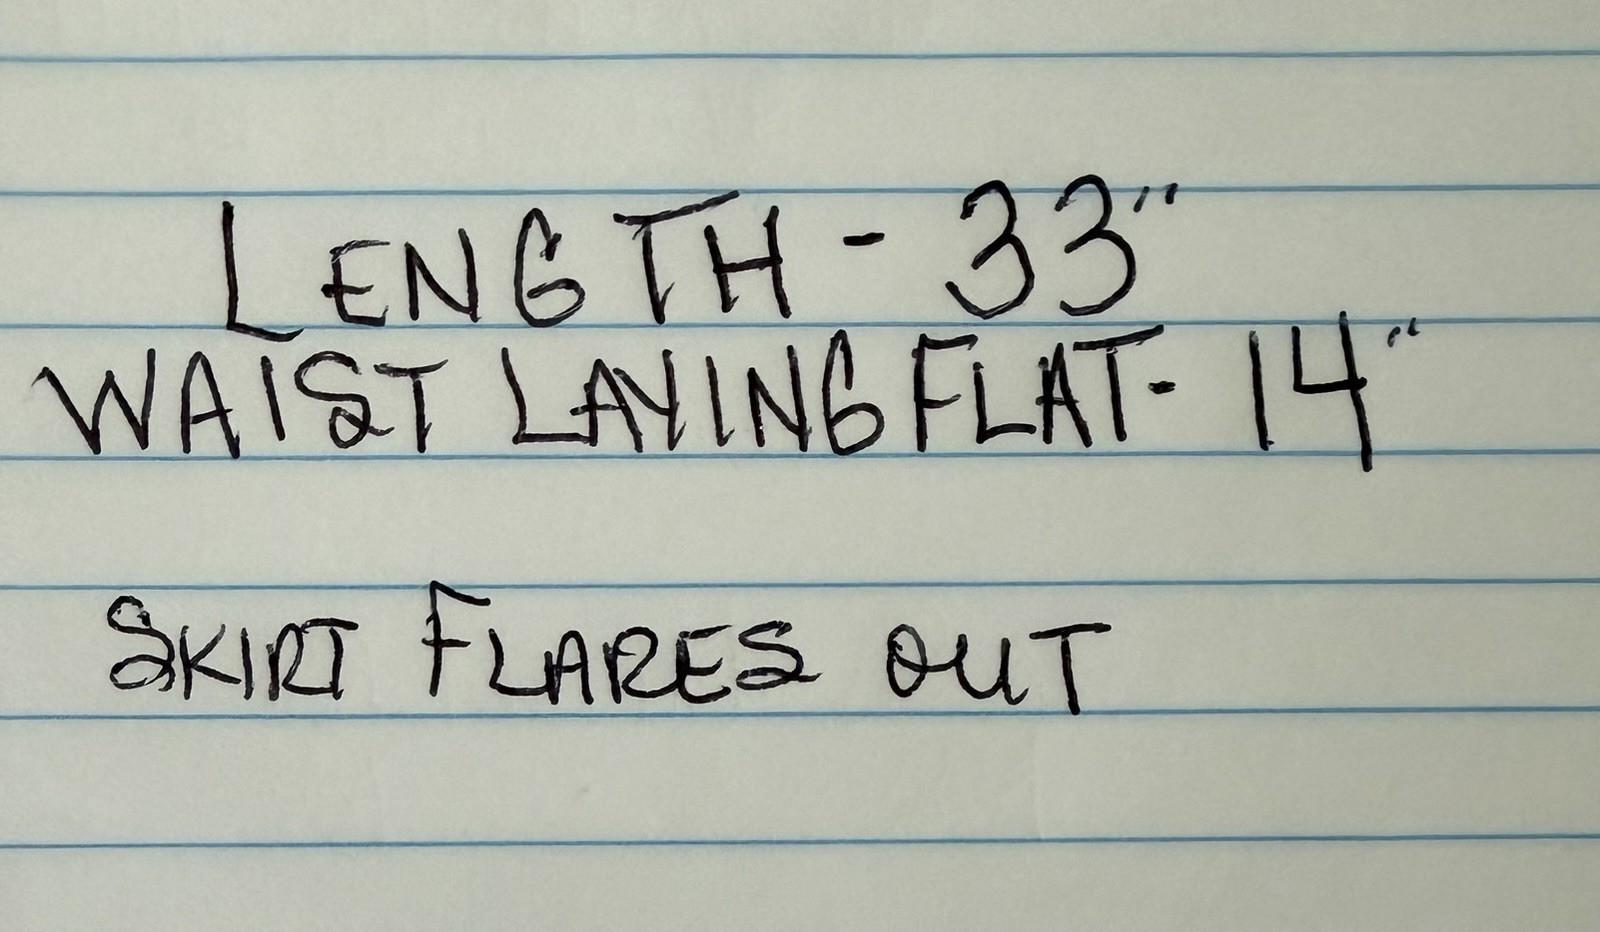 LENGTH - 33"
WAIST LAYING FLAT - 14"
SKIRT FLARES OUT